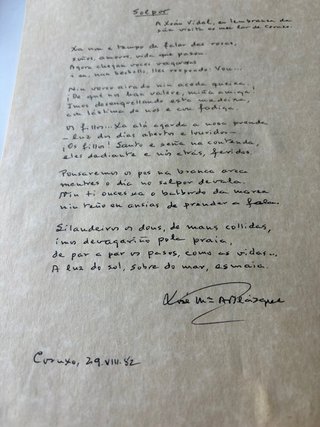 Solpor
A Xoán Vidal, en lembranza da
súa visita ao meu lar de Coruxo.
Xa non é tempo de falar das rosas,
soños, amores, vida que pasou
Agora chegan voces
i eu, nun
Nin verso airado nin aceda queixa...
¡De qué nos han valere, miña amiga!
Imos desenguellando esta madeixa,
sin lástima de nós e sen fadiga.
Os fillos... Xa alá agarda a nosa prenda
- luz dos días abertos e louridos -
¡Os fillos! Santo e seña na contenda,
eles dediante e nós atrás, feridos.
Pousaremos os pés na branca area
mentres o día no solpor devala.
Nin ti ouces xa o balbordo da marea
nin teño eu ansias de prender a fala.
Silandeiros os dous, de maus collidas,
imos devagariño pola praia,
de par a par os pasos, como as vidas...
A luz do sol, sobre do mar, esmaia.
Xosé Mª Álvarez
Coruxo, 29.VIII.82